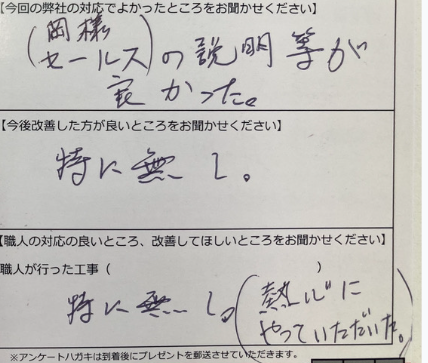 【今回の弊社の対応でよかったところをお聞かせください】
(岡様
セールス)の説明等が
良かった。
【今後改善した方が良いところをお聞かせください】
特に無し。
【職人の対応の良いところ、改善してほしいところをお聞かせください】
職人が行った工事（　　　　　　　　　　　　　　）
特に無し。(熱心に
やっていただいた。)
※アンケートハガキは到着後にプレゼントを郵送させていただきます。